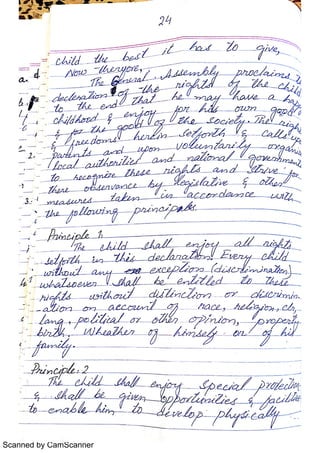 24
child the best it has to give,
Now therefore,
The General Assembly proclaims
declaration of the rights of the child
to the end that he may have a happy
childhood & enjoy for his own good
& for the good of the society. The rights
& freedoms herein setforth & calls upon
parents and upon voluntarily organis
local authorities and national government
to recognize these rights and strive for
there observance by legislative & other
measures taken in accordance with
the following principals.
Principle 1:
The child shall enjoy all rights
setforth in this declaration. Every child
without any exception (discrimination)
whatsoever shall be entitled to these
rights without distinction or discrimin-
-ation on account of race, religion, clr,
lang, political or other opinion, property
birth, wheather of himself or of his
family.
Principle: 2
The child shall enjoy special protection
& shall be given opportunities & facilities
to enable him to develop physically
Scanned by CamScanner